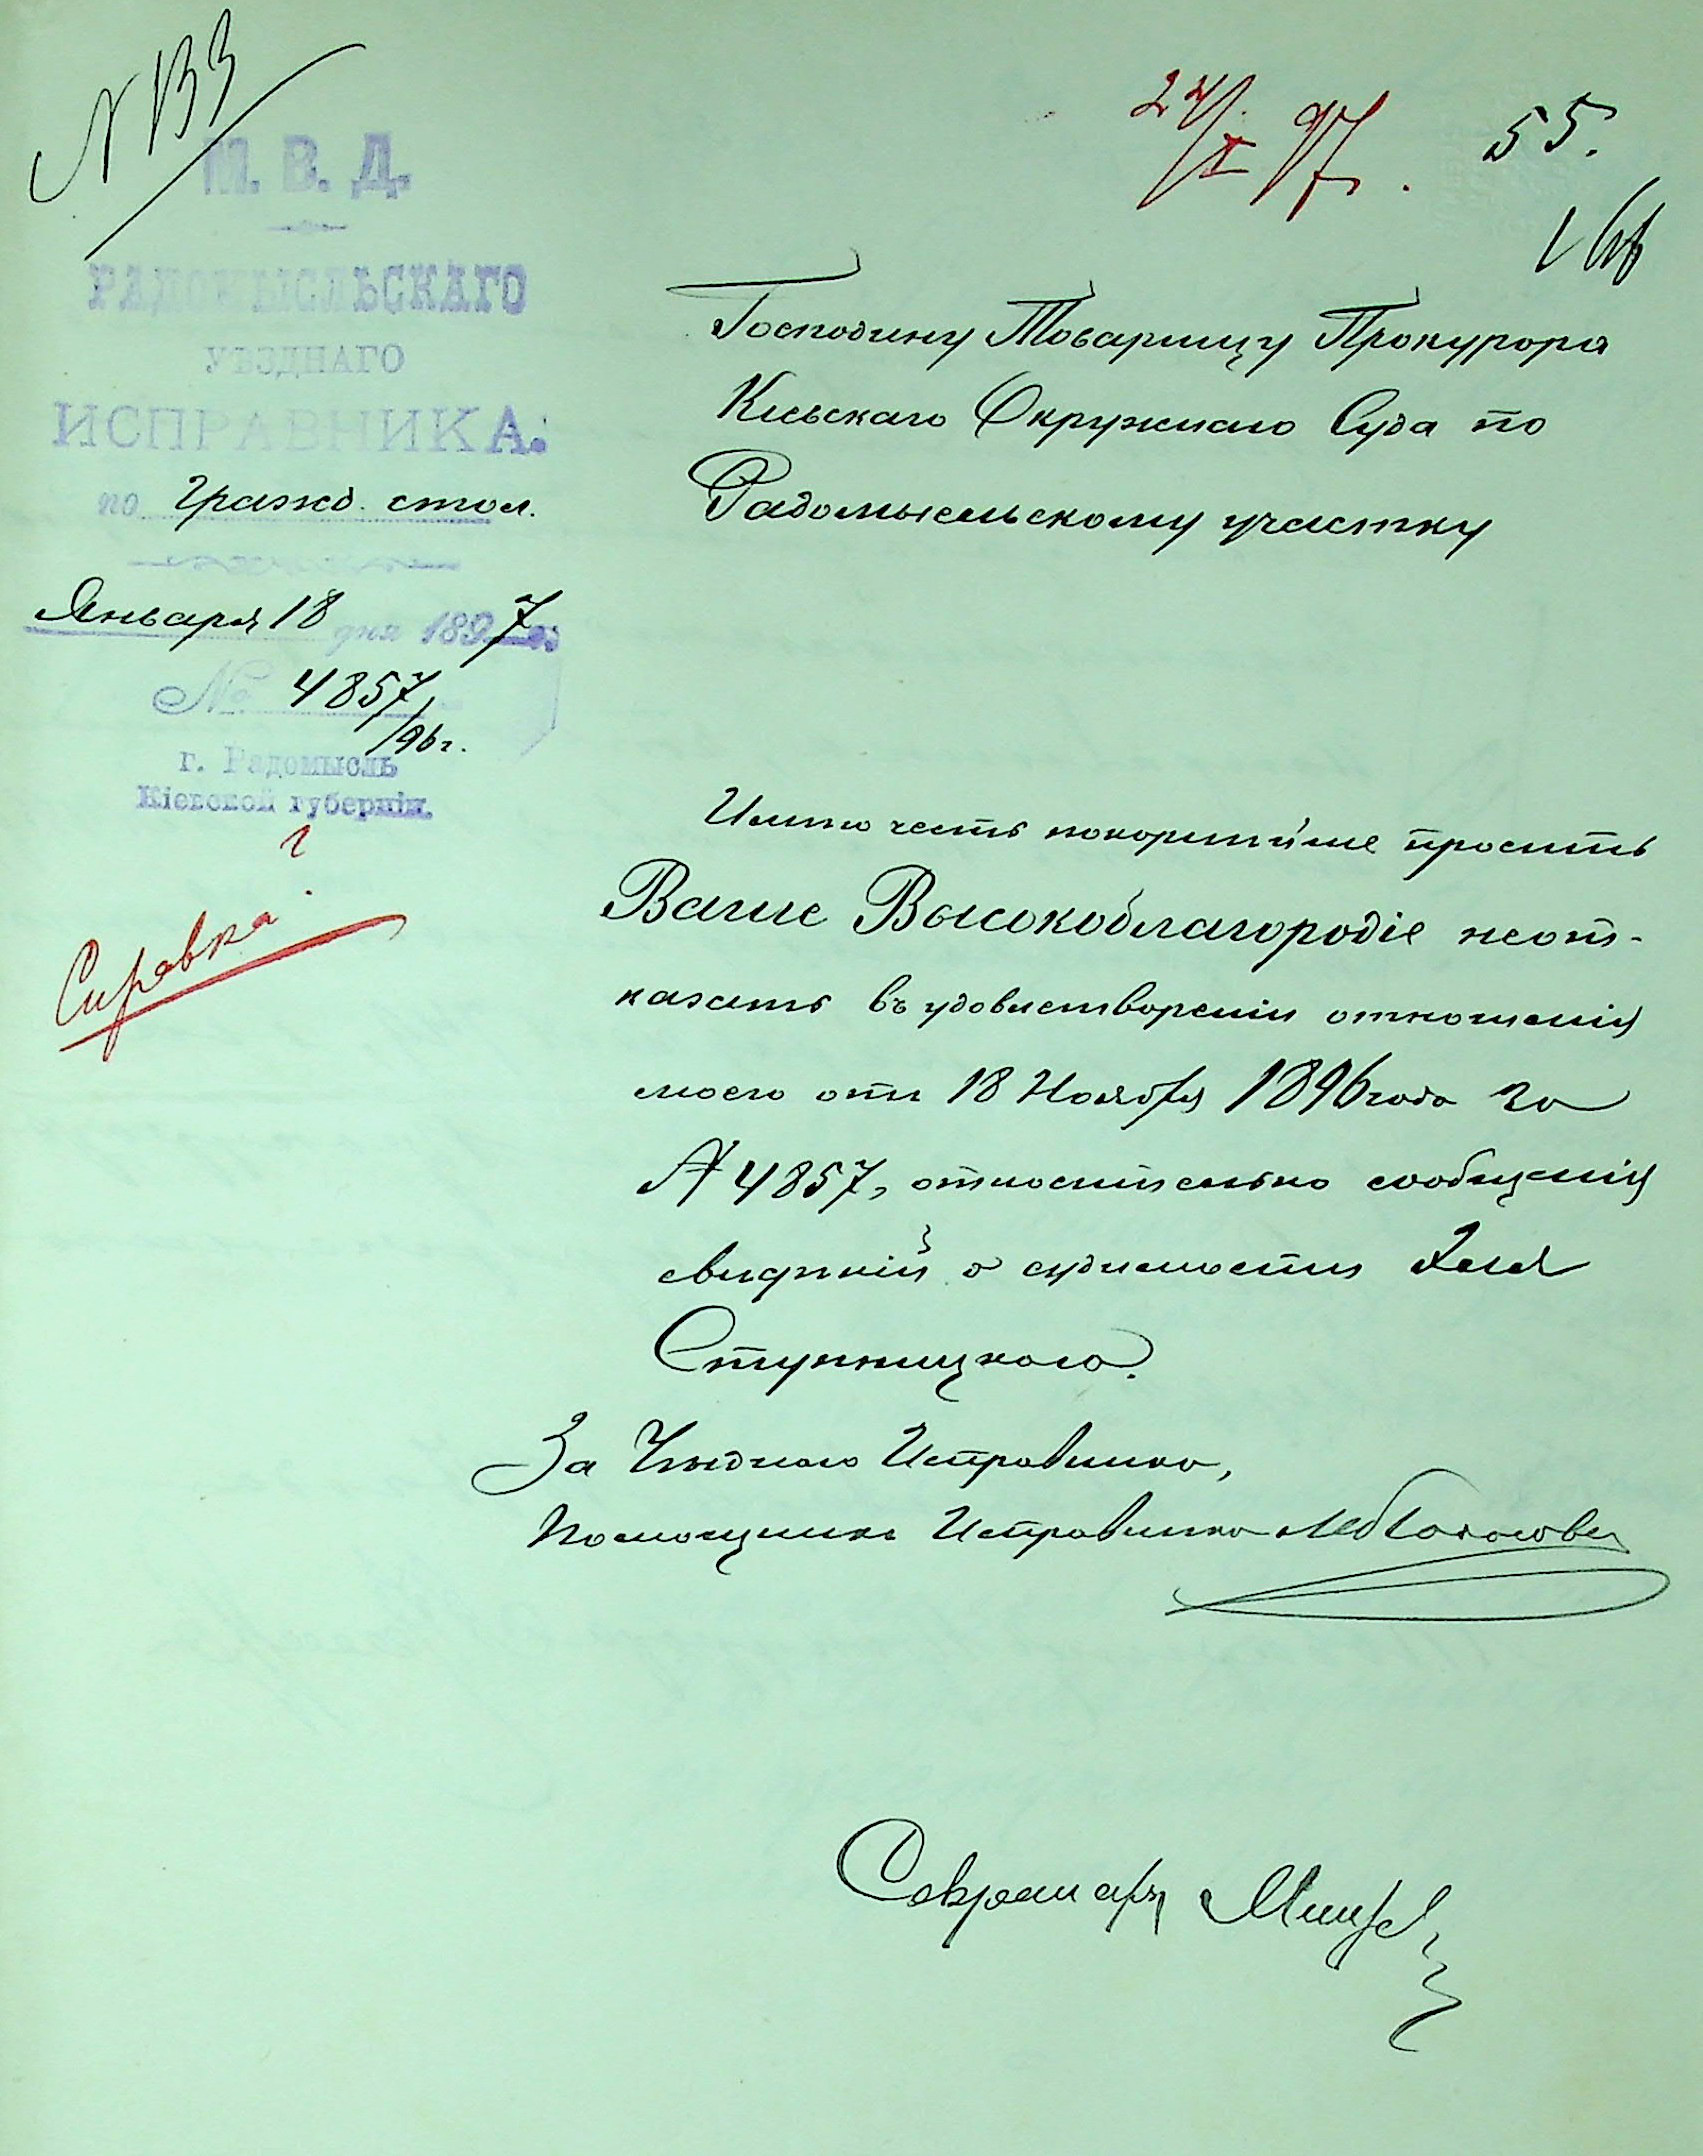 № 133
24/I 97.
55.
М. В. Д.
РАДОМЫСЛЬСКАГО
УѢЗДНАГО
ИСПРАВНИКА.
по Гражд. стол.
Января 18 дня 1897 г.
№ 4857/96 г.
г. Радомысль
Кіевской губерніи.
Справка
Господину Товарищу Прокурора
Кіевскаго Окружнаго Суда по
Радомысльскому участку
Имѣю честь покорнѣйше просить
Ваше Высокоблагородіе неот-
казать въ удовлетвореніи отношенія
моего отъ 18 Ноября 1896 года за
№ 4857, относительно сообщенія
свѣдѣній о судимости
Ступницкаго.
За Уѣзднаго Исправника,
Помощникъ Исправника
Секретарь